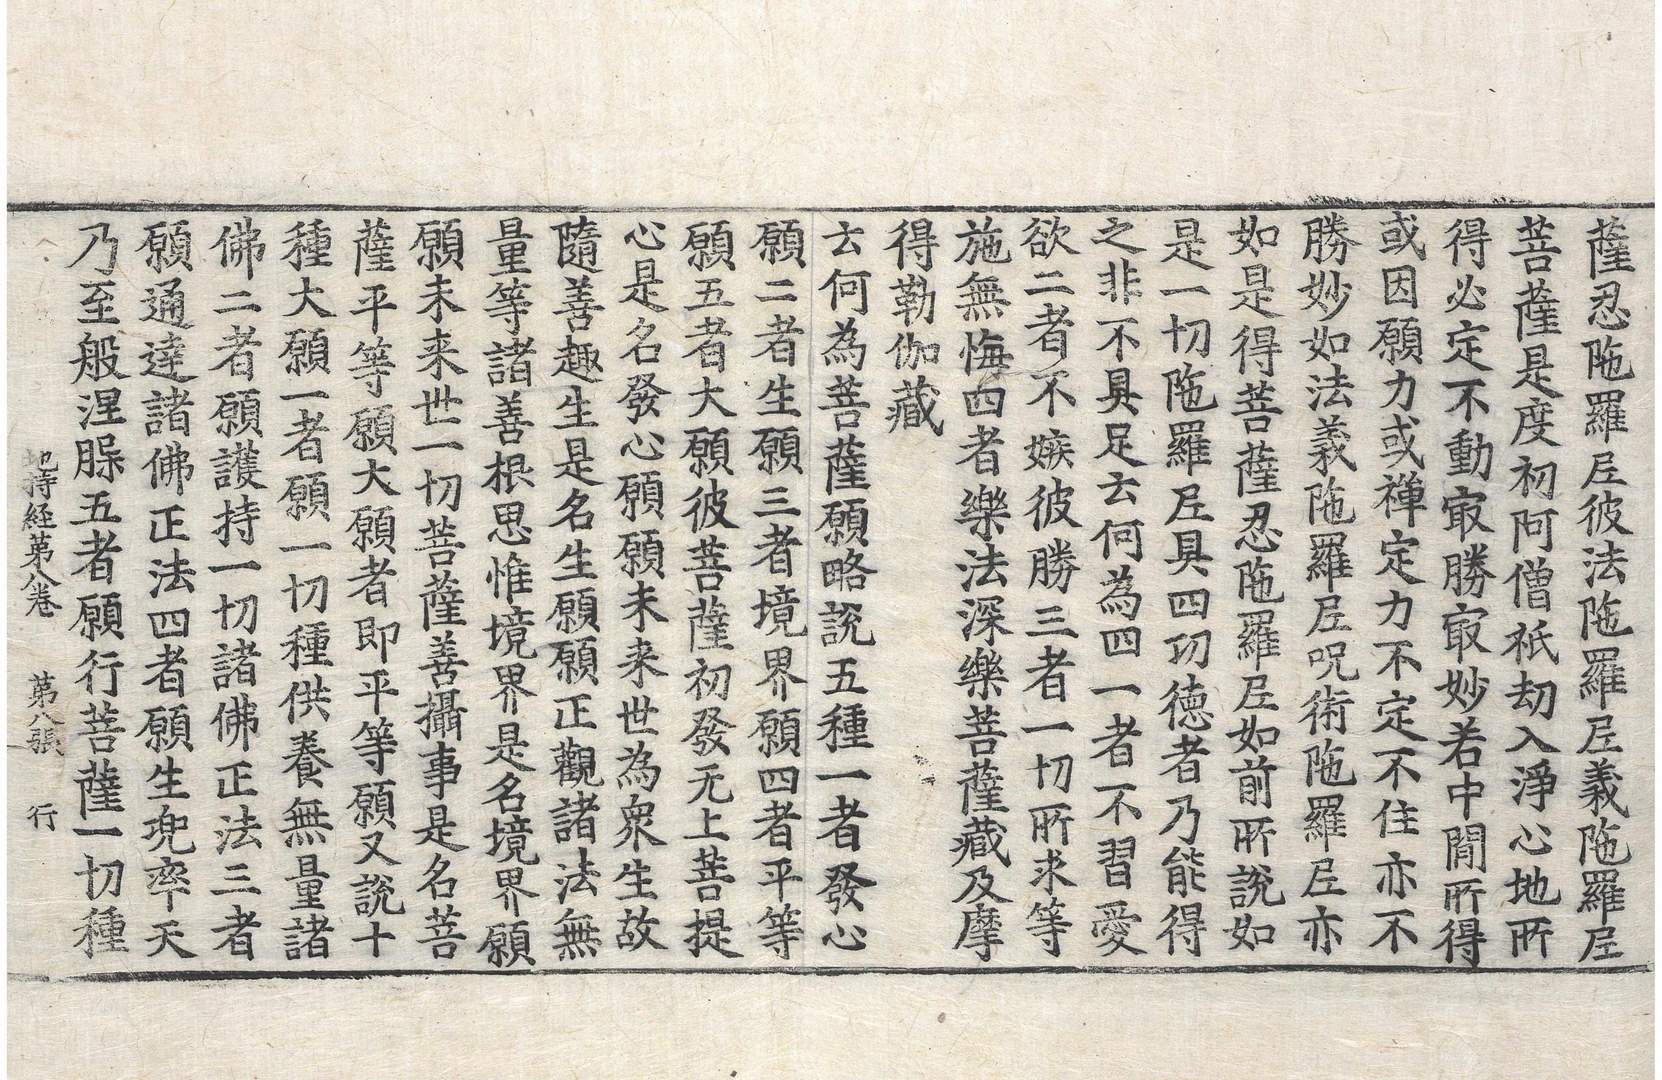 薩忍陁羅𡰱彼法陁羅𡰱義陁羅𡰱
菩薩是度初阿僧祇劫入淨心地所
得必定不動㝡勝㝡妙若中閒所得
或因願力或禪定力不定不住亦不
勝妙如法義陁羅𡰱呪術陁羅𡰱亦
如是得菩薩忍陁羅𡰱如前所說如
是一切陁羅𡰱具四功徳者乃能得
之非不具足云何為四一者不習愛
欲二者不嫉彼勝三者一切所求等
施無悔四者樂法深樂菩薩藏及摩
得勒伽藏
云何為菩薩願略說五種一者發心
願二者生願三者境界願四者平等
願五者大願彼菩薩初發无上菩提
心是名發心願願未来世為衆生故
隨善趣生是名生願願正觀諸法無
量等諸善根思惟境界是名境界願
願未来世一切菩薩善攝事是名菩
薩平等願大願者即平等願又說十
種大願一者願一切種供養無量諸
佛二者願護持一切諸佛正法三者
願通達諸佛正法四者願生兜率天
乃至般涅槃五者願行菩薩一切種
地持経苐八卷 苐八張 行